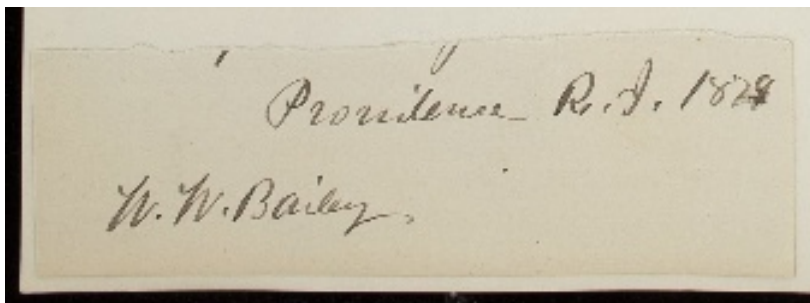 Providence R. I. 1878
W. W. Bailey.